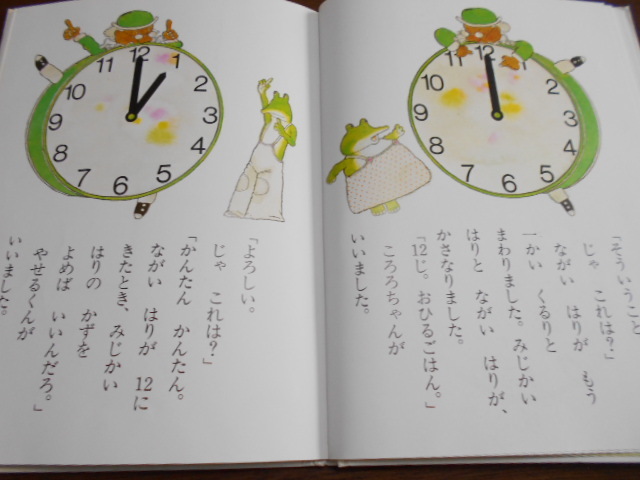 12
1
2
3
4
5
6
7
8
9
10
11
「そういうこと
じゃ　これは？」
ながい　はりが　もう
一かい　くるりと
まわりました。みじかい
はりと　ながい　はりが、
かさなりました。
「12じ。おひるごはん。」
ころろちゃんが
いいました。
12
1
2
3
4
5
6
7
8
9
10
11
「よろしい。
じゃ　これは？」
「かんたん　かんたん。
ながい　はりが　12に
きたとき、みじかい
はりの　かずを
よめば　いいんだろ。」
やせるくんが
いいました。